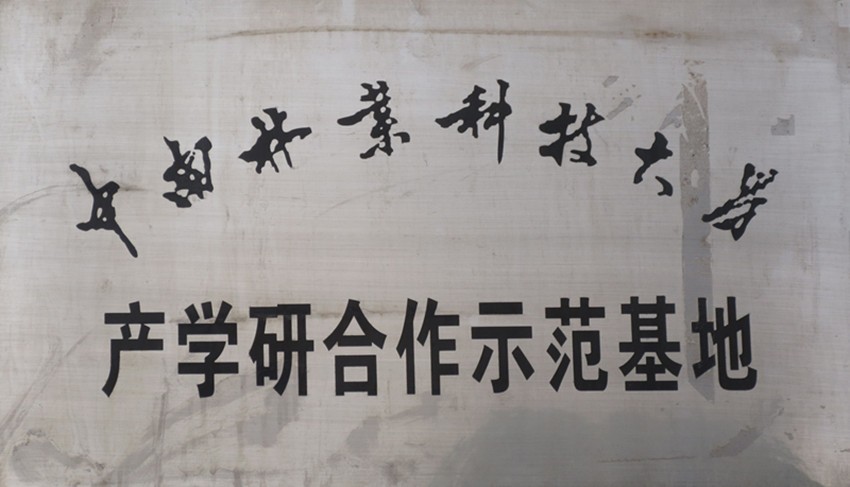 中南林業科技大学
产学研合作示范基地